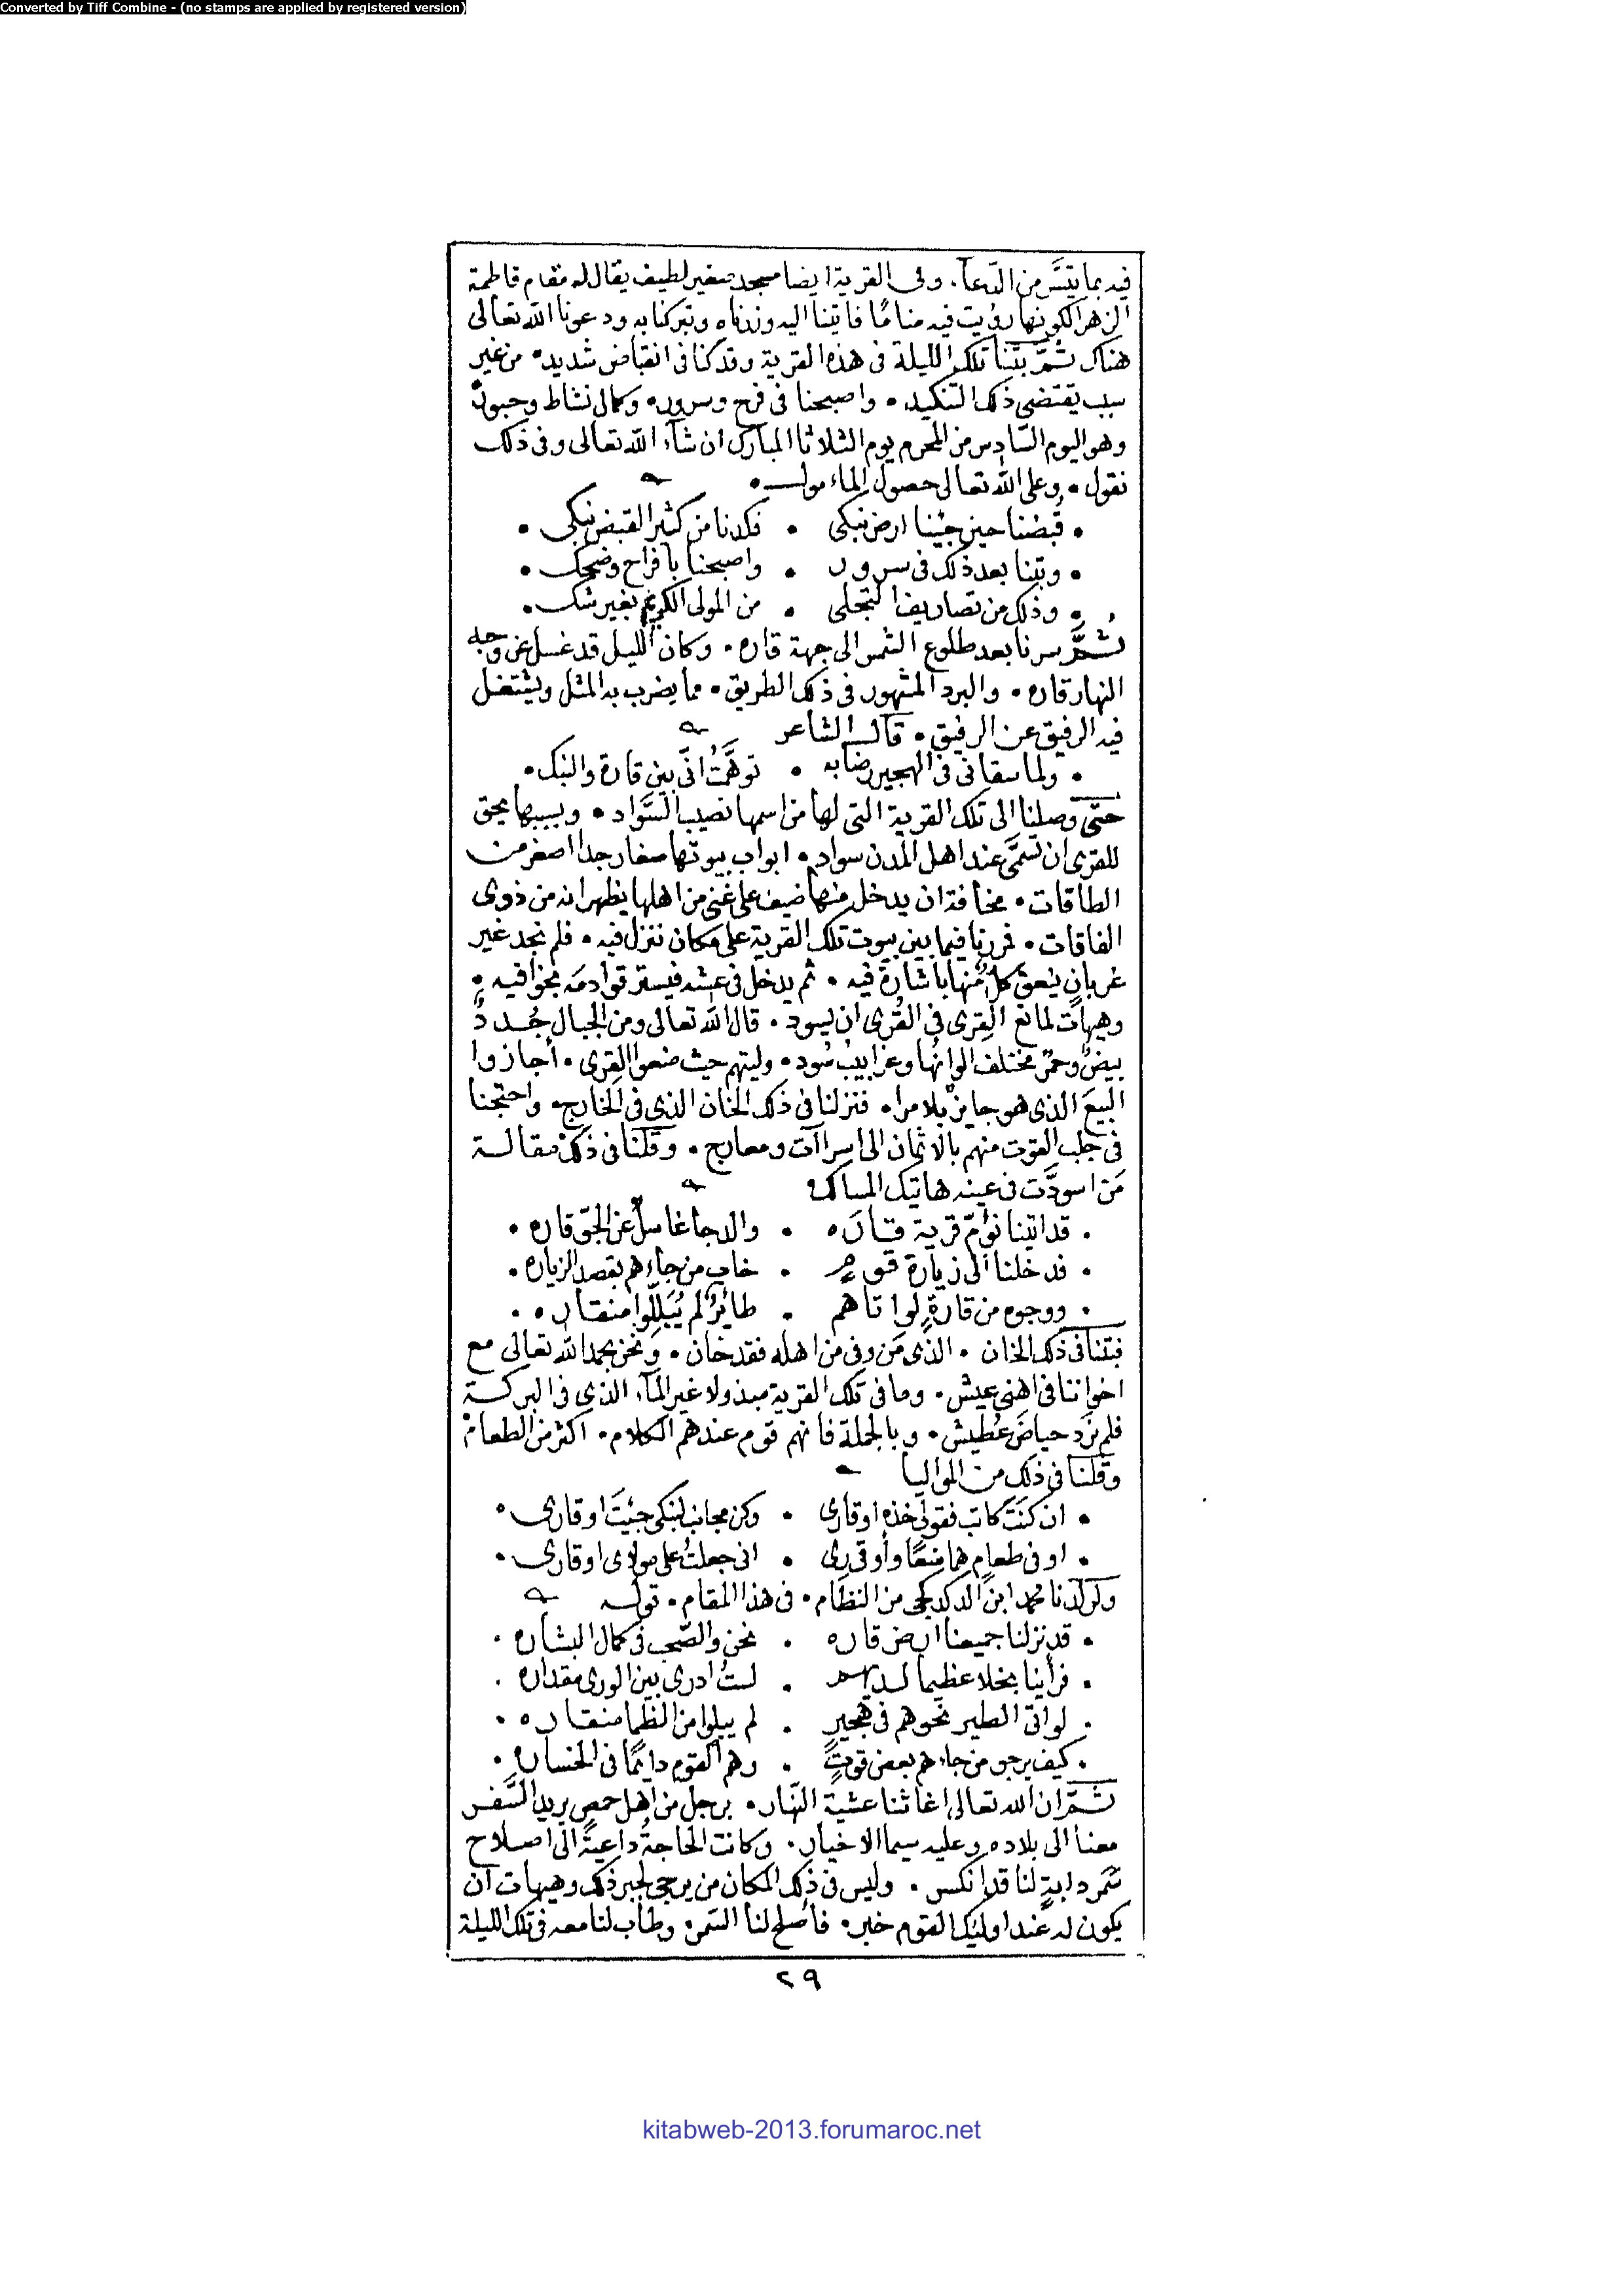 Converted by Tiff Combine - (no stamps are applied by registered version)
فيه بما يتيسَّر من الدّعآ. وفى القرية ايضا مسجد صغير لطيف يقال له مقام فاطمة
الزهرا لكونها رؤيت فيه منامًا فاتينا اليه وزرناه وتبركنا به ودعونا الله تعالى
هناك ثمّ بتنا تلك الليلة فى هذه القرية وقد كنا فى انقباض شديد • من غير
سبب يقتضى ذلك التنكيد • واصبحنا فى فرح وسرور • وكمال نشاط وحبور
وهو اليوم السّادس من المحرم يوم الثلاثا المبارك ان شآء الله تعالى وفى ذلك
نقول • وعلى الله تعالى حصول
• قُبضنا حين جئنا ارض نبكى • فكدنا من كثير القبض نبكى •
• وبتنا بعد ذلك فى سرور • واصبحنا بافراح وضحك •
• وذلك من تصاريف التجلى • من المولى الكريم بغير شك •
ثمَّ سرنا بعد طلوع الشمس الى جهة قاره • وكان الليل قد غسل عن وجه
النهار قاره • والبرد المشهور فى ذلك الطريق • مما يضرب به المثل ويشتغل
فيه الرفيق عن الرفيق • قال الشاعر
• ولما سقانى فى الهجير رضابه • توهَّمتُ انّى بين قارة والنبك •
حتّى وصلنا الى تلك القرية التى لها من اسمها نصيب السَّواد • وبسببها يحق
للقرى ان تسمَّى عند اهل المدن سواد • ابواب بيوتها صغار جدا اصغر من
الطاقات • مخافة ان يدخل منها ضيف على غنى من اهلها يظهر انه من ذوى
الفاقات • فمررنا فيما بين بيوت تلك القرية على مكان ننزل فيه • فلم نجد غير
غربانٍ ينعق كلٌّ منها باشارة فيه • ثم يدخل فى عشه فيستر قوادمه بخوافيه •
وهيهات لمانع القِرى فى القُرى ان يسود • قال الله تعالى ومن الجبال جُدد
بيضٌ وحمرٌ مختلف الوانها وغرابيب سُود • وليتهم حيث منعوا القِرى • أجازوا
البيعَ الذى هو جايز بلا مرا • فنزلنا فى ذلك الخان الذى فى الخارج • واحتجنا
فى جلب القوت منهم بالاثمان الى اسراآت ومعارج • وقلنا فى ذلك مقالة
مَن اسودَّت فى عينه هاتيك المسالك
• قد اتينا نؤمّ قرية قاره • والدجا غاسلٌ عن الجوّ قاره •
• فدخلنا الى زيارة قوم • خاب من جاءهم بقصد الزياره •
• ووجوه من قارةٍ لو اتاهم • طائرٌ لم يُبَلِّلوا منقاره •
فبتنا فى ذلك الخان • الذى مَن وفى من اهله فقد خان • ونحن بحمد الله تعالى مع
اخواننا فى اهنى عيش • وما فى تلك القرية مبذولا غير المآء الذى فى البركة
فلم نَرِد حياضَ عُطيش • وبالجملة فانهم قوم عندهم الكلام • اكثر من الطعام
وقلنا فى ذلك من المواليا
• ان كنتَ كاتب فقولى خذه او قارى • وكن مجانب لنبكى جئتَ او قارى •
• او فى طعام هما مَنعًا وأوقرى • انى جعلتُ على مولاى اوقارى •
ولولدنا محمد ابن الدكدكجى من النظام • فى هذا المقام • قوله
• قد نزلنا جميعنا ارض قاره • نحن والصّحب فى كمال البشاره •
• فرأينا بخلا عظيما لديهم • لستُ ادرى بين الورى مقداره •
• لو اتى الطير نحوهم فى هجيرٍ • لم يبلوا من الظما منقاره •
• كيف يرجو من جاءهم بعض قوتٍ • وهم القوم دايمًا فى الخساره •
ثمّ ان الله تعالى اغاثنا عشية النّهار • برجل من اهل حمص يريد السَّفر
معنا الى بلاده وعليه سيما الاخيار • وكانت الحاجةُ داعيةً الى اصلاح
سَمَر دابةٍ لنا قد انكسر • وليس فى ذلك المكان من يرجى لجبر ذلك وهيهات ان
يكون له عند اوليك القوم خبر • فأصلح لنا السمر • وطاب لنا معه فى تلك الليلة
٢٩
kitabweb-2013.forumaroc.net